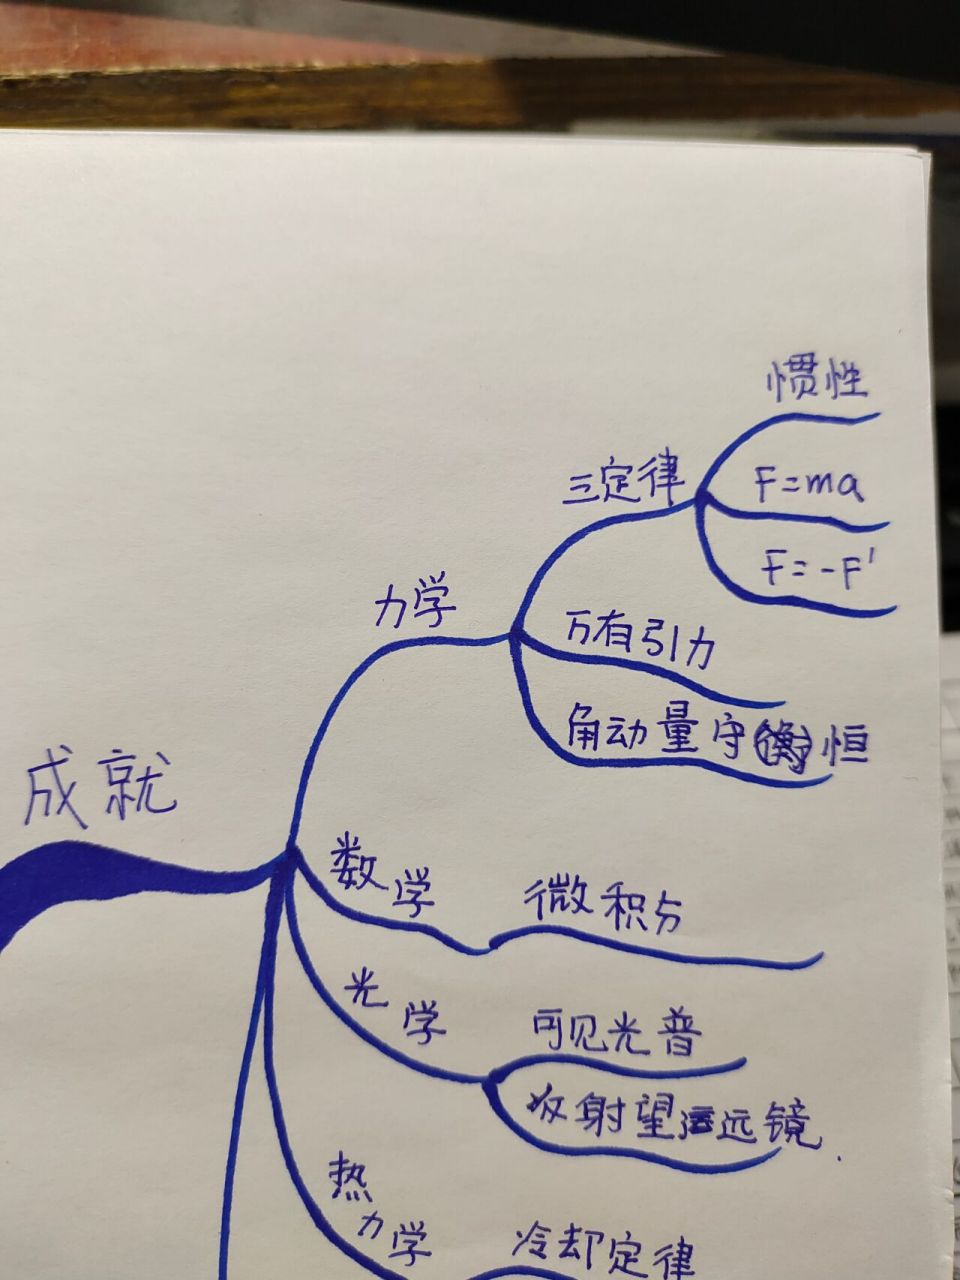 成就
力学
三定律
惯性
F=ma
F=-F'
万有引力
角动量守恒
数学
微积分
光学
可见光普
放射望远镜
热力学
冷却定律